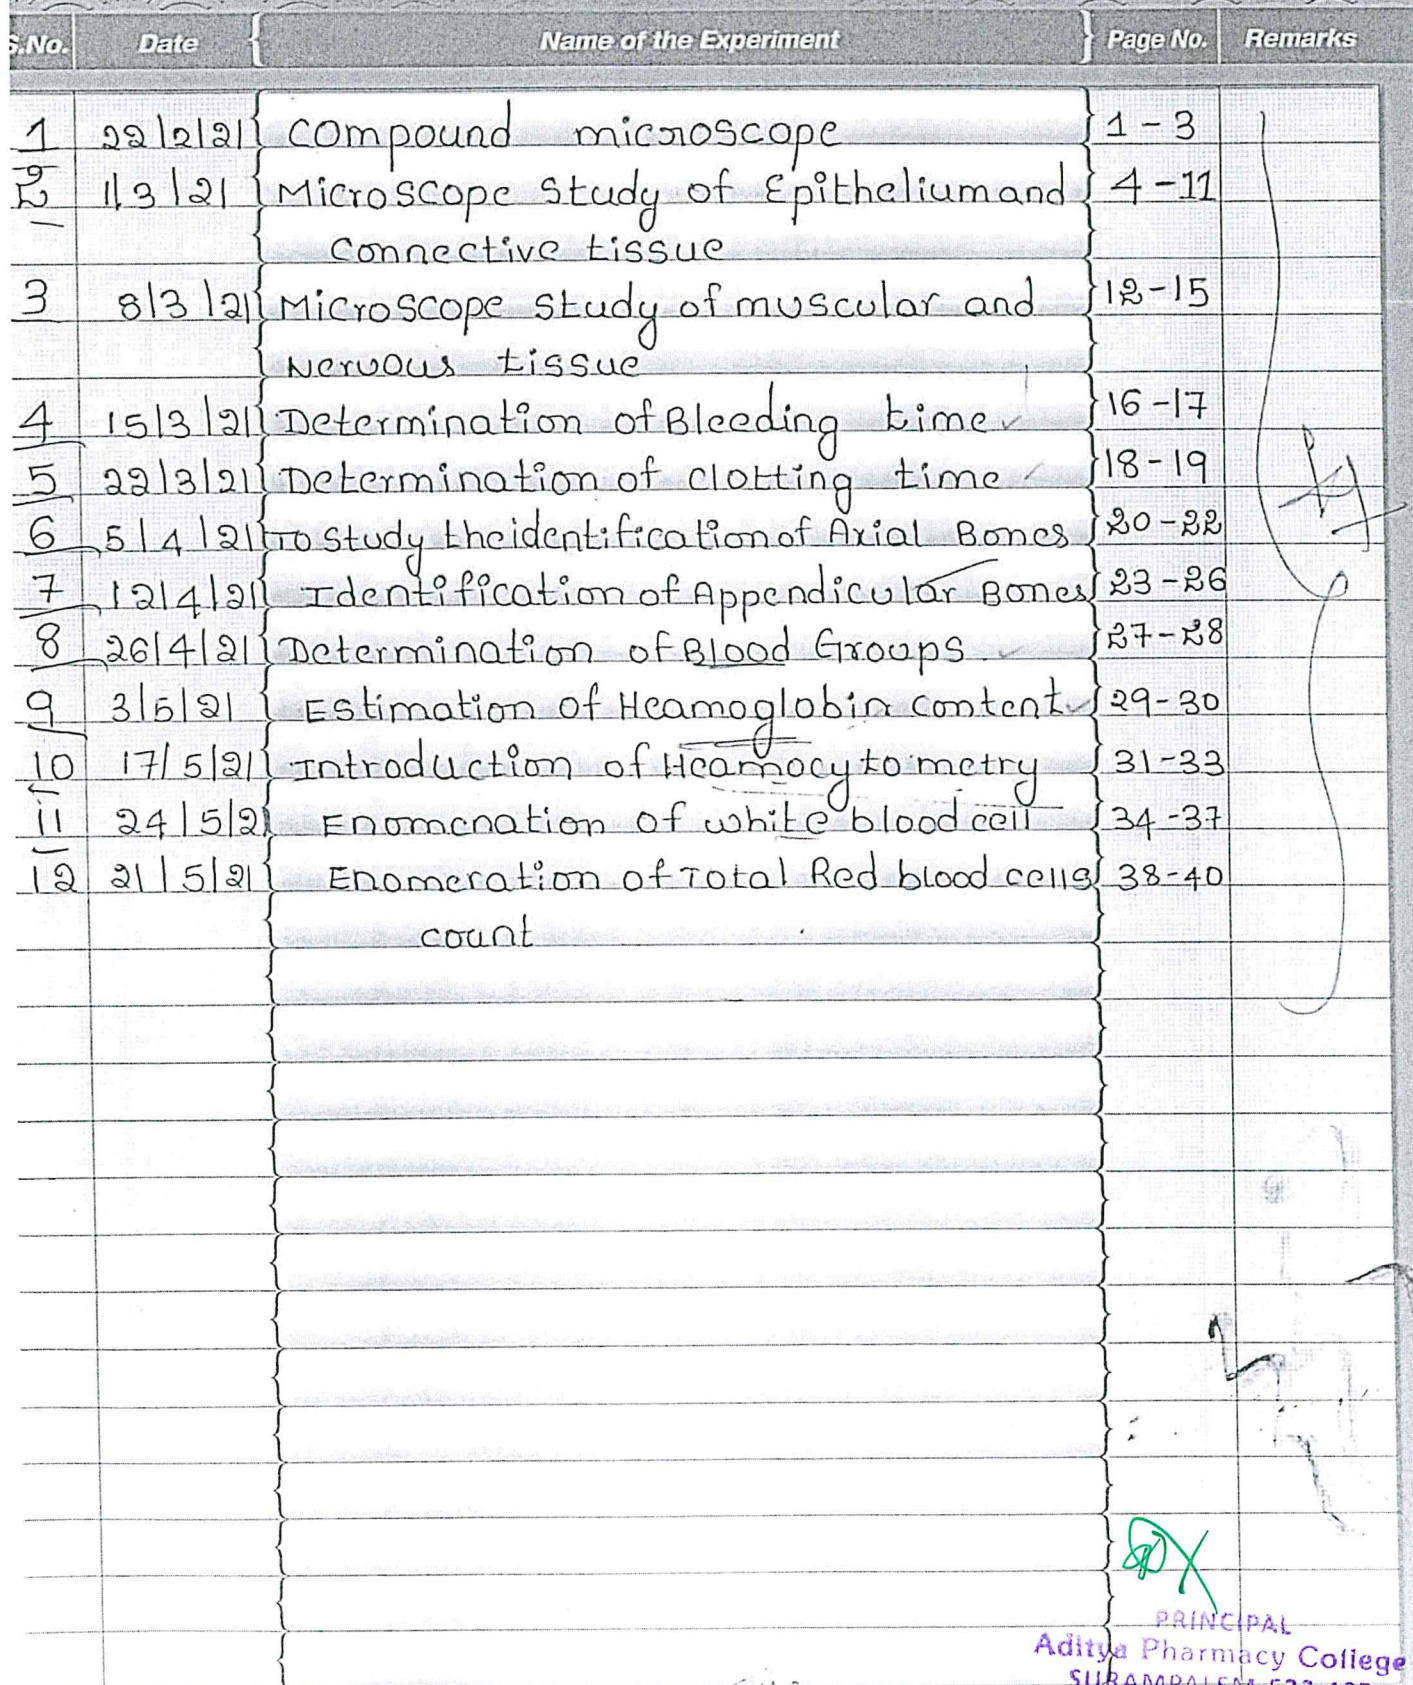 S.No. Date Name of the Experiment Page No. Remarks
1 22/2/21 Compound microscope 1-3
2 1/3/21 Microscope Study of Epithelium and 4-11
Connective tissue
3 8/3/21 Microscope Study of muscular and 12-15
Nervous tissue
4 15/3/21 Determination of Bleeding time 16-17
5 22/3/21 Determination of clotting time 18-19
6 5/4/21 To study the identification of Axial Bones 20-22
7 12/4/21 Identification of Appendicular Bones 23-26
8 26/4/21 Determination of Blood Groups 27-28
9 3/5/21 Estimation of Heamoglobin content 29-30
10 17/5/21 Introduction of Heamocytometry 31-33
11 24/5/21 Enomenation of white blood cell 34-37
12 21/5/21 Enomeration of Total Red blood cells 38-40
count
PRINCIPAL
Aditya Pharmacy College
SURAMPALEM